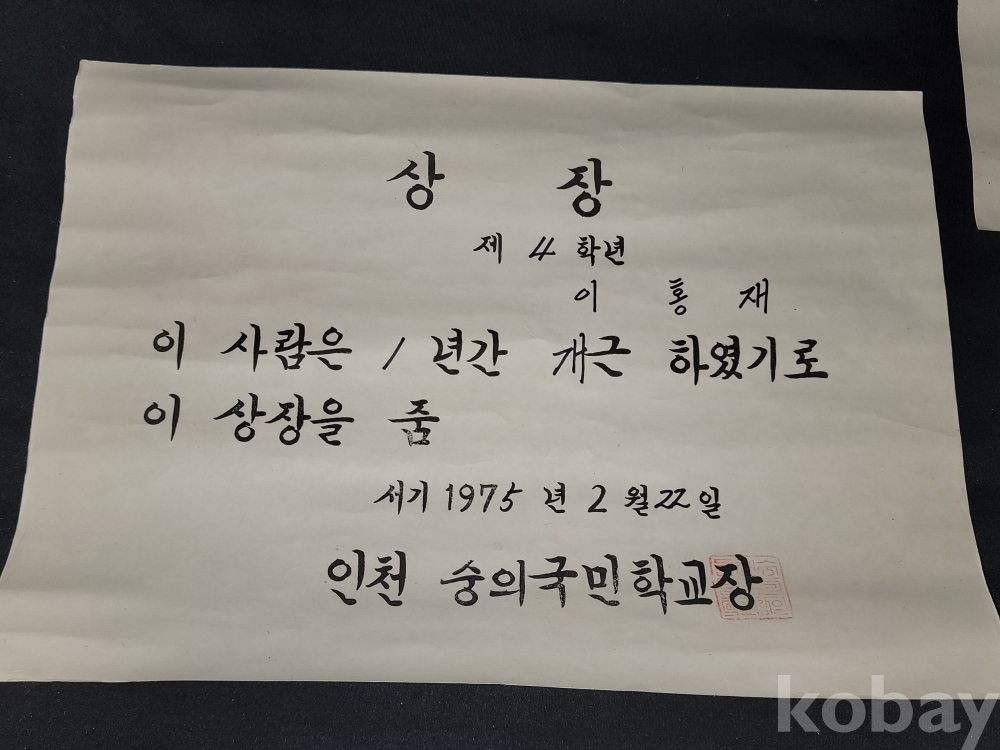 상 장
제 4 학년
이 홍 재
이 사람은 1년간 개근 하였기로
이 상장을 줌
서기 1975 년 2 월 22 일
인천 숭의국민학교장
kobay